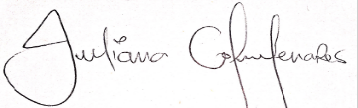 Juliana Colmenares